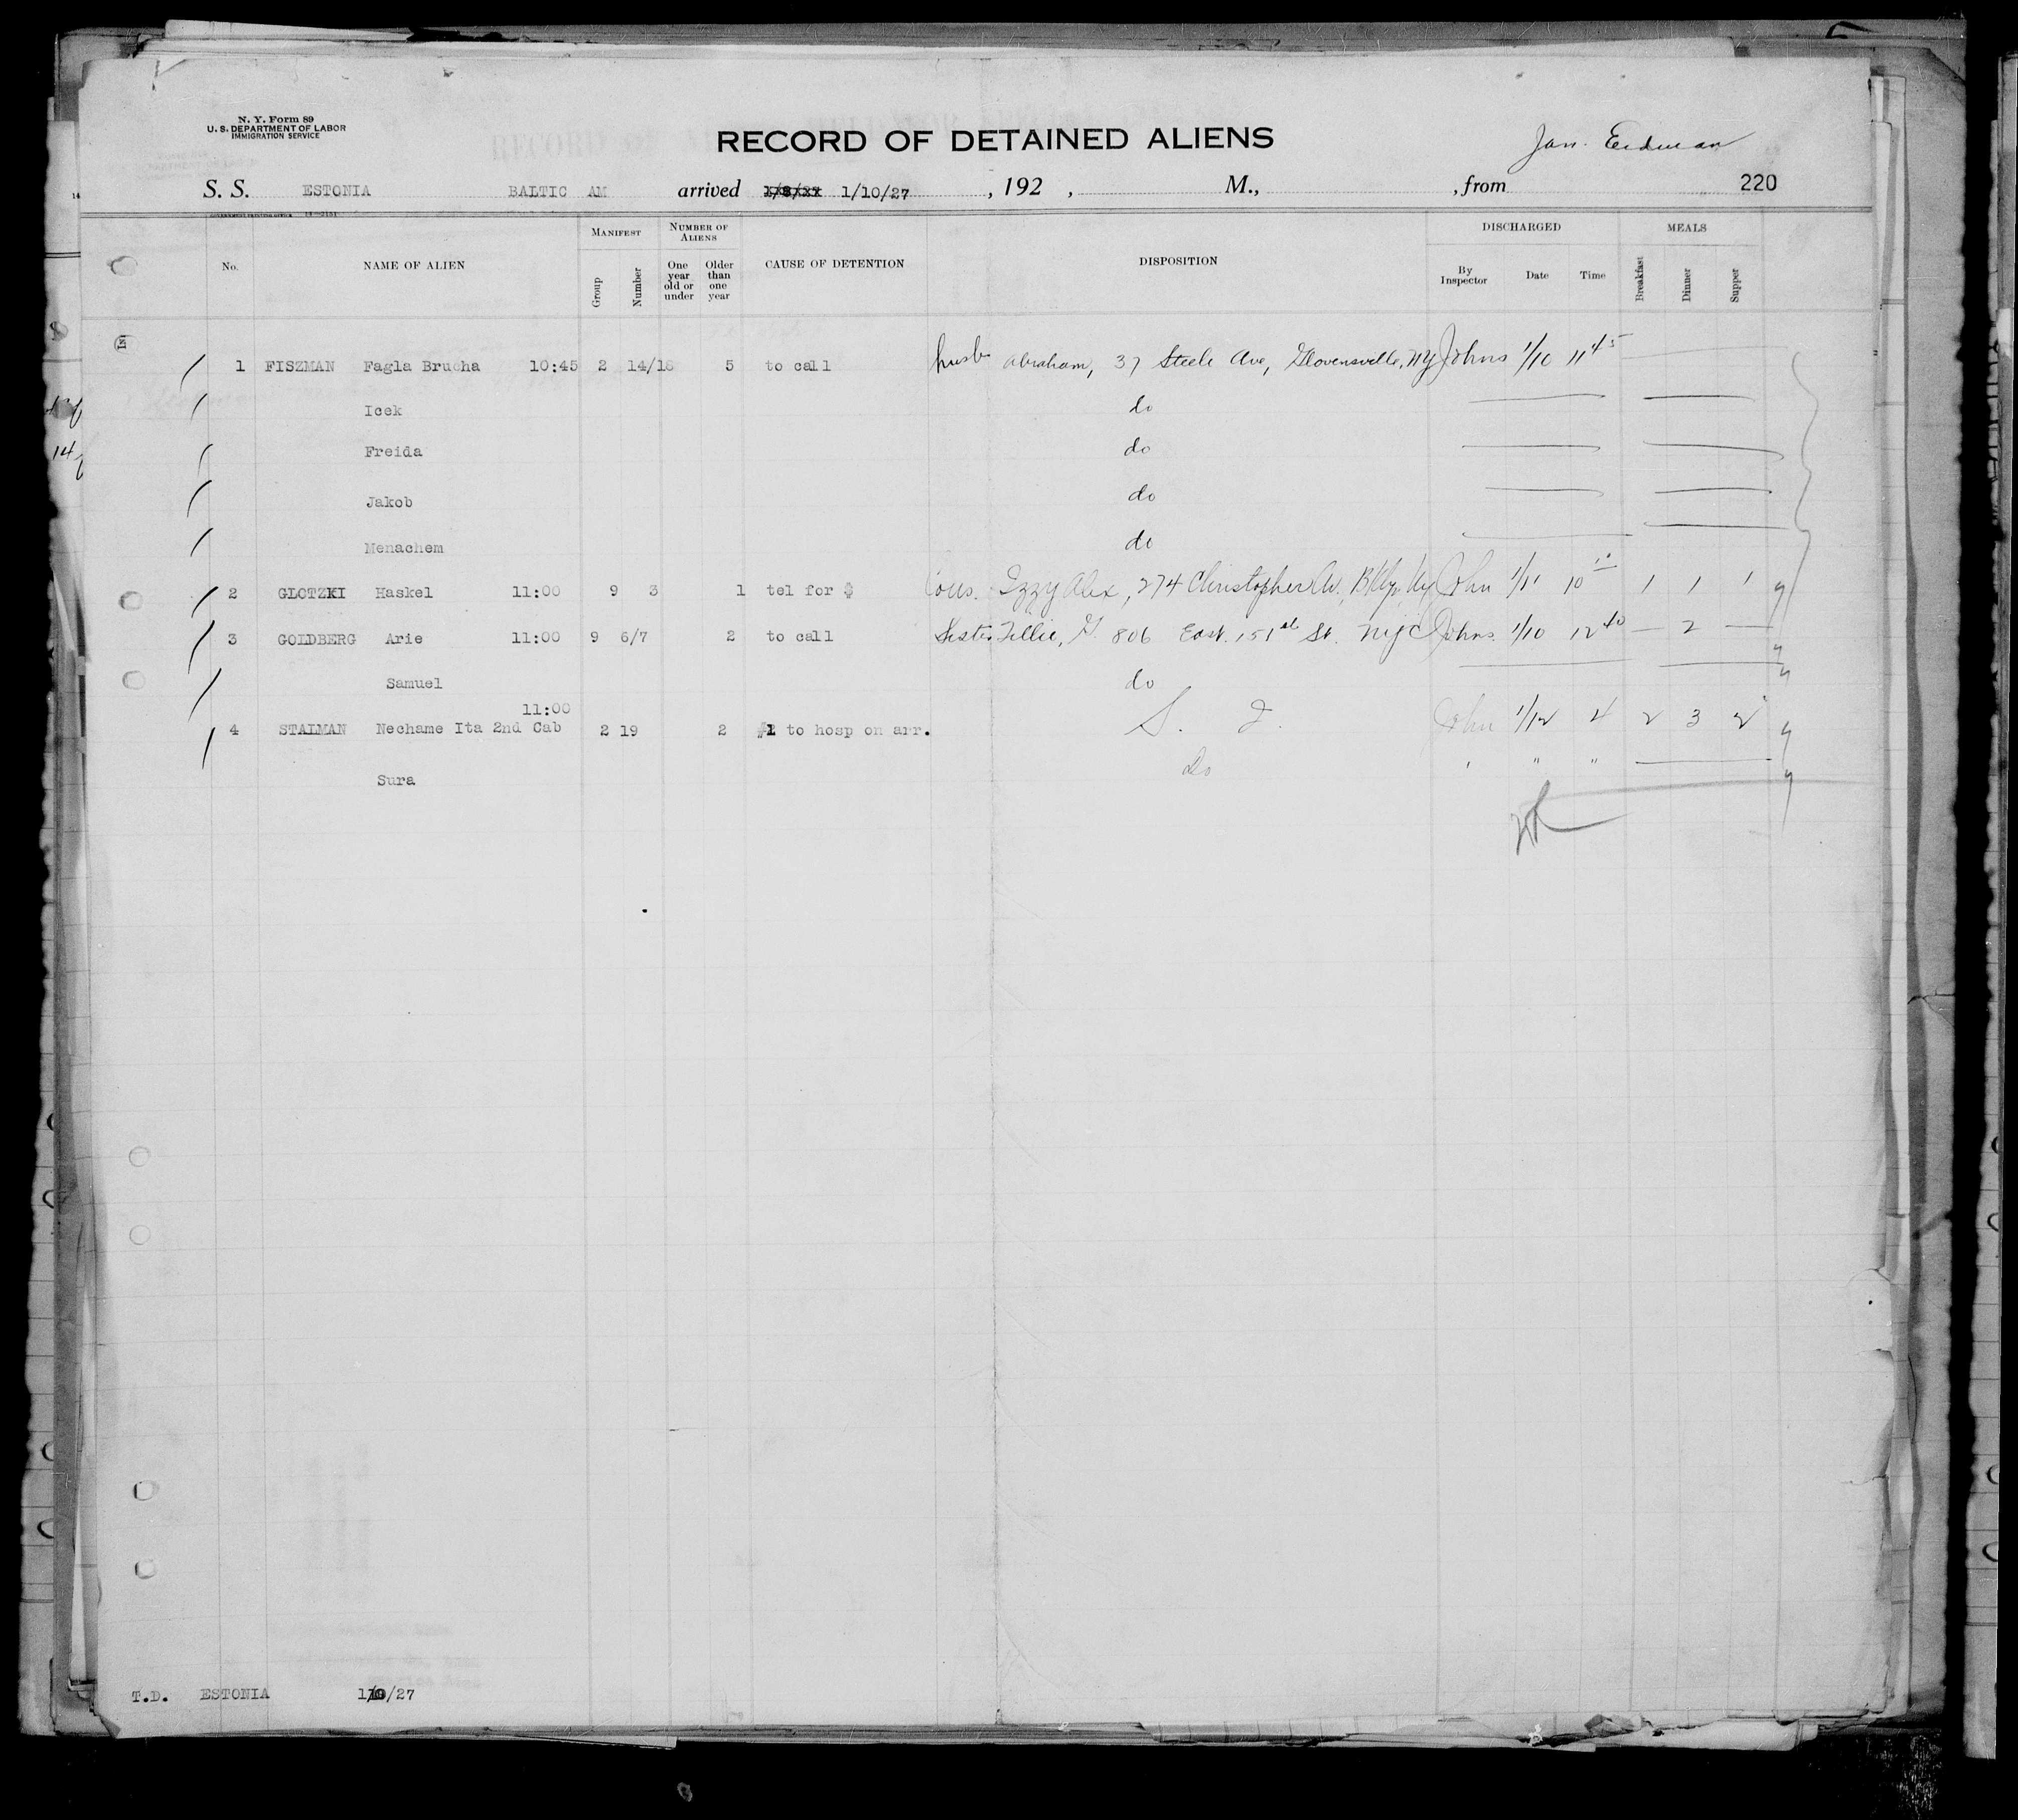 N. Y. Form 89
U. S. DEPARTMENT OF LABOR
IMMIGRATION SERVICE
RECORD OF DETAINED ALIENS
Jan. Erdman
S. S. ESTONIA BALTIC AM arrived 1/10/27 , 192 , M., , from 220
GOVERNMENT PRINTING OFFICE
MANIFEST NUMBER OF ALIENS DISCHARGED MEALS
No. NAME OF ALIEN Group Number One year old or under Older than one year CAUSE OF DETENTION DISPOSITION By Inspector Date Time Breakfast Dinner Supper
1 FISZMAN Fagla Brucha 10:45 2 14/18 5 to call husb Abraham, 37 Steele Ave, Glovensville, NY Johns 1/10 11 45
Icek do
Freida do
Jakob do
Menachem do
2 GLOTZKI Haskel 11:00 9 3 1 tel for $ Cous. Izzy Alex, 274 Christopher Av. Bklyn, Ny John 1/11 10 1 1 1
3 GOLDBERG Arie 11:00 9 6/7 2 to call Sister Tillie, G. 806 East. 151st St. NYC Johns 1/10 12 40 — 2 —
Samuel do
11:00
4 STALMAN Nechame Ita 2nd Cab 2 19 2 #1 to hosp on arr. S. I. John 1/12 4 2 3 2
Sura do " "
T.D. ESTONIA 1/10/27